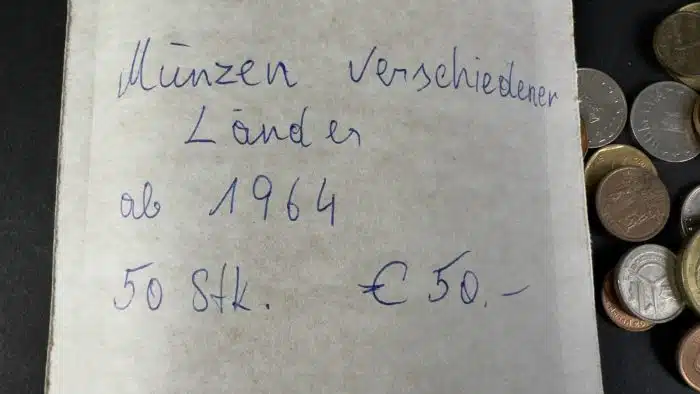 Münzen verschiedener
Länder
ab 1964
50 Stk. € 50.-